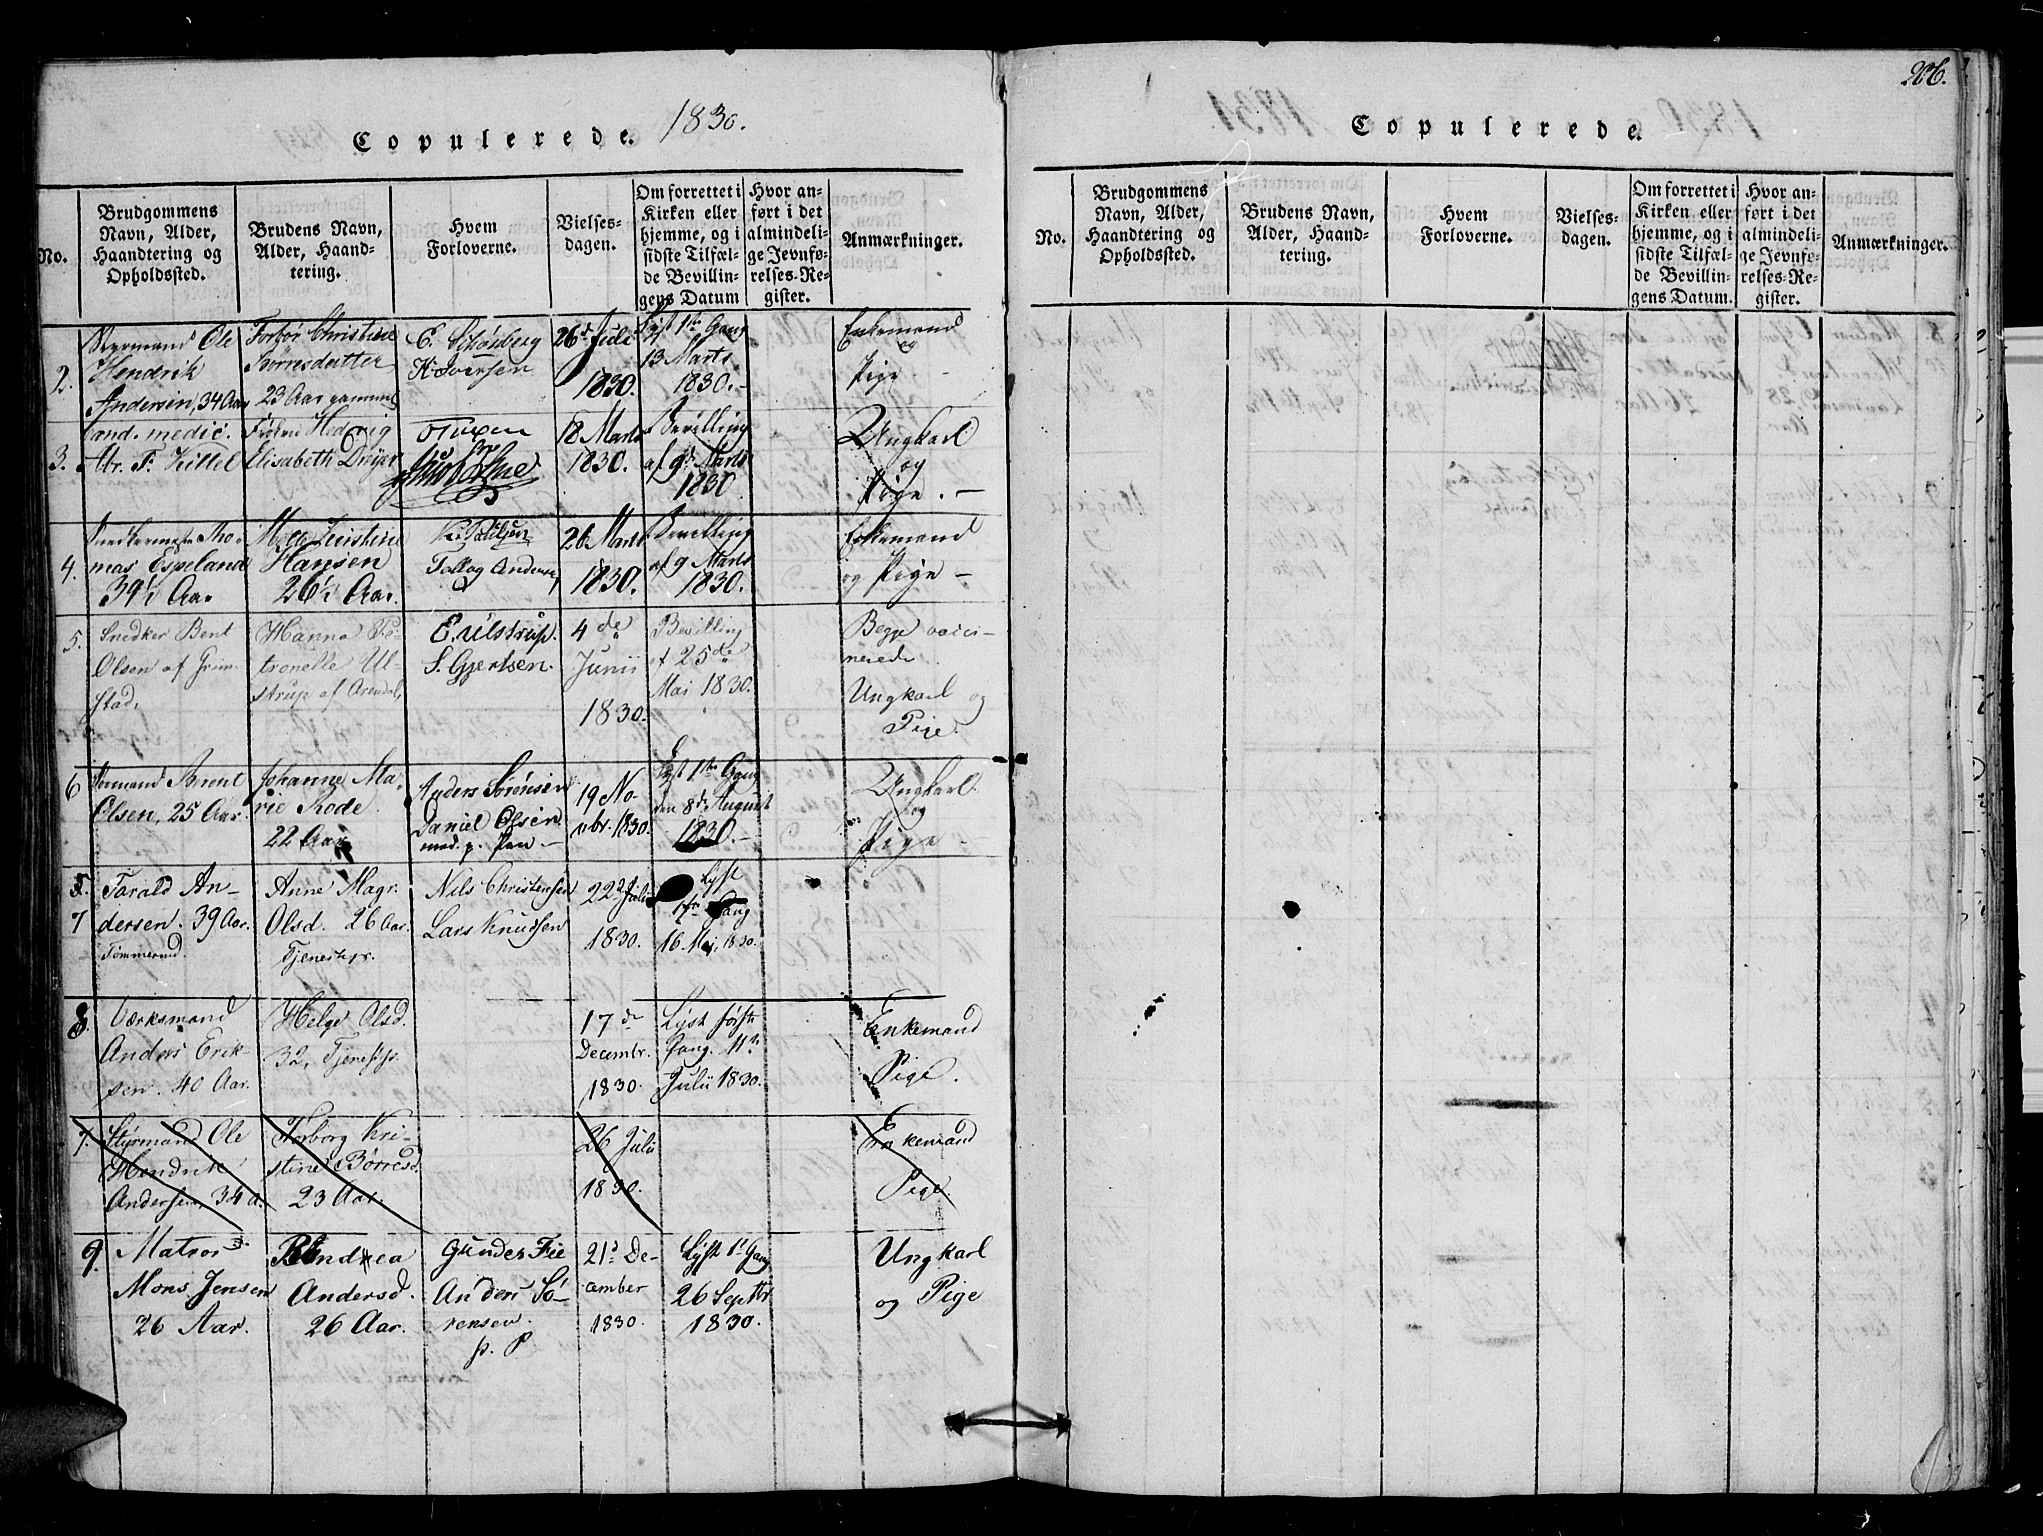 Copulerede. 1830.
No.
Brudgommens
Navn, Alder,
Haandtering og
Opholdssted.
Brudens Navn,
Alder, Haand-
tering.
Hvem
Forloverne.
Vielses-
dagen.
Om forrettet i
Kirken eller
hjemme, og i
sidste Tilfæl-
de Bevillin-
gens Datum
Hvor an-
ført i det
almindeli-
ge Jevnfø-
relses-Re-
gister.
Anmærkninger.
2.
Styrmand Ole
Hendrik
Andersen, 34 Aar
Torbor Christine
Børresdatter
23 Aar gammel
E. Schøsberg
K Iversen
26d Juli
1830.
Lyst 1ste Gang
13 Marts
1830.-
Enkemand
og
Pige
3.
Cand. medic.
Abr. F. Kittel
Frøken Hedevig
Elisabeth Dreyer
18 Marts
1830.
Bevilling
af 9de Marts
1830
Ungkarl
og
Pige. -
4.
Snedkermester Tho-
mas Espeland
39½ Aar
Maja Kirstine
Hansen
26½ Aar.
Tallag Andersen
26 Marts
1830.
Bevilling
af 9 Marts
1830.
Enkemand
og Pige -
5.
Snedker Bent
Olsen af Grim-
stad,
Hanna Pe-
tronelle Ul-
strup af Arendal,
E. Ulstrup.
S. Gjertsen.
4de
Junii
1830.
Bevilling
af 25de
Mai 1830.
Begge vacci-
nerede.
Ungkarl og
Pige.
6
Bernt
Olsen, 25 Aar.
Johanne Ma-
rie Rode
22 Aar
Anders Sørensen
Daniel Olsen
med. p. Pen -
19 No-
vbr. 1830.
Lyst 1ste Gang
den 8de August
1830.-
Ungkarl.
og
Pige -
5.
7
Tarald An-
dersen. 39 Aar.
Tømmermd.
Anne Magr.
Olsd. 26 Aar.
Tjenestepr.
Nils Christensen
Lars Knudsen
22d Juli
1830.
Lyst
1ste Gang
16 Mai, 1830.
8.
Værksmand
Anders Erik-
sen. 40 Aar.
Helge Olsd.
32, Tjenestp.
17de
Decembr.
1830.
Lyst første
Gang. 11te
Julii 1830.
Enkemand
Pige.
7.
Styrmand Ole
Hendrik
Andersen, 34 a.
Torborg Kri-
stine Børresd.
23 Aar.
26 Julii
1830.
Enkemand
Pige.
9.
Matros
Mons Jensen
26 Aar.
Andrea
Andersd.
26 Aar.
Gunder Fie
Anders Sö-
rensen.
p. P
21d De-
cember
1830.
Lyst 1st Gang
26 Septbr
1830.
Ungkarl
og Pige
206.
Copulerede.
No.
Brudgommens
Navn, Alder,
Haandtering og
Opholdssted.
Brudens Navn,
Alder, Haand-
tering.
Hvem
Forloverne.
Vielses-
dagen.
Om forrettet i
Kirken eller
hjemme, og i
sidste Tilfæl-
de Bevillin-
gens Datum.
Hvor an-
ført i det
almindeli-
ge Jevnfø-
relses-Re-
gister.
Anmærkninger.